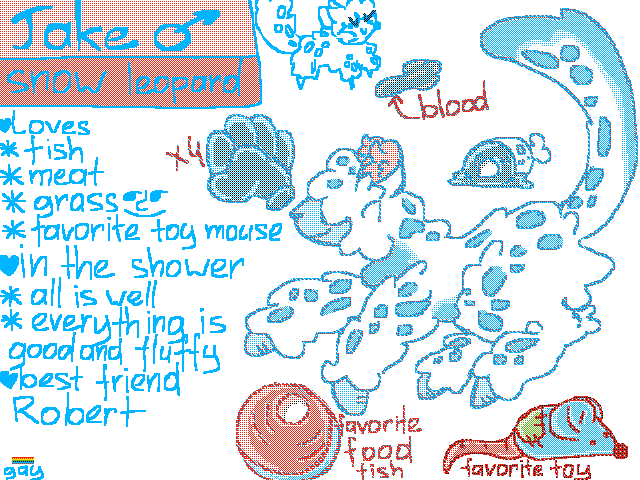 Jake ♂
snow leopard
blood
x4
♥Loves
* fish
* meat
* grass
* favorite toy mouse
♥in the shower
* all is well
* everything is
good and fluffy
♥best friend
Robert
favorite
food
fish
favorite toy
gay